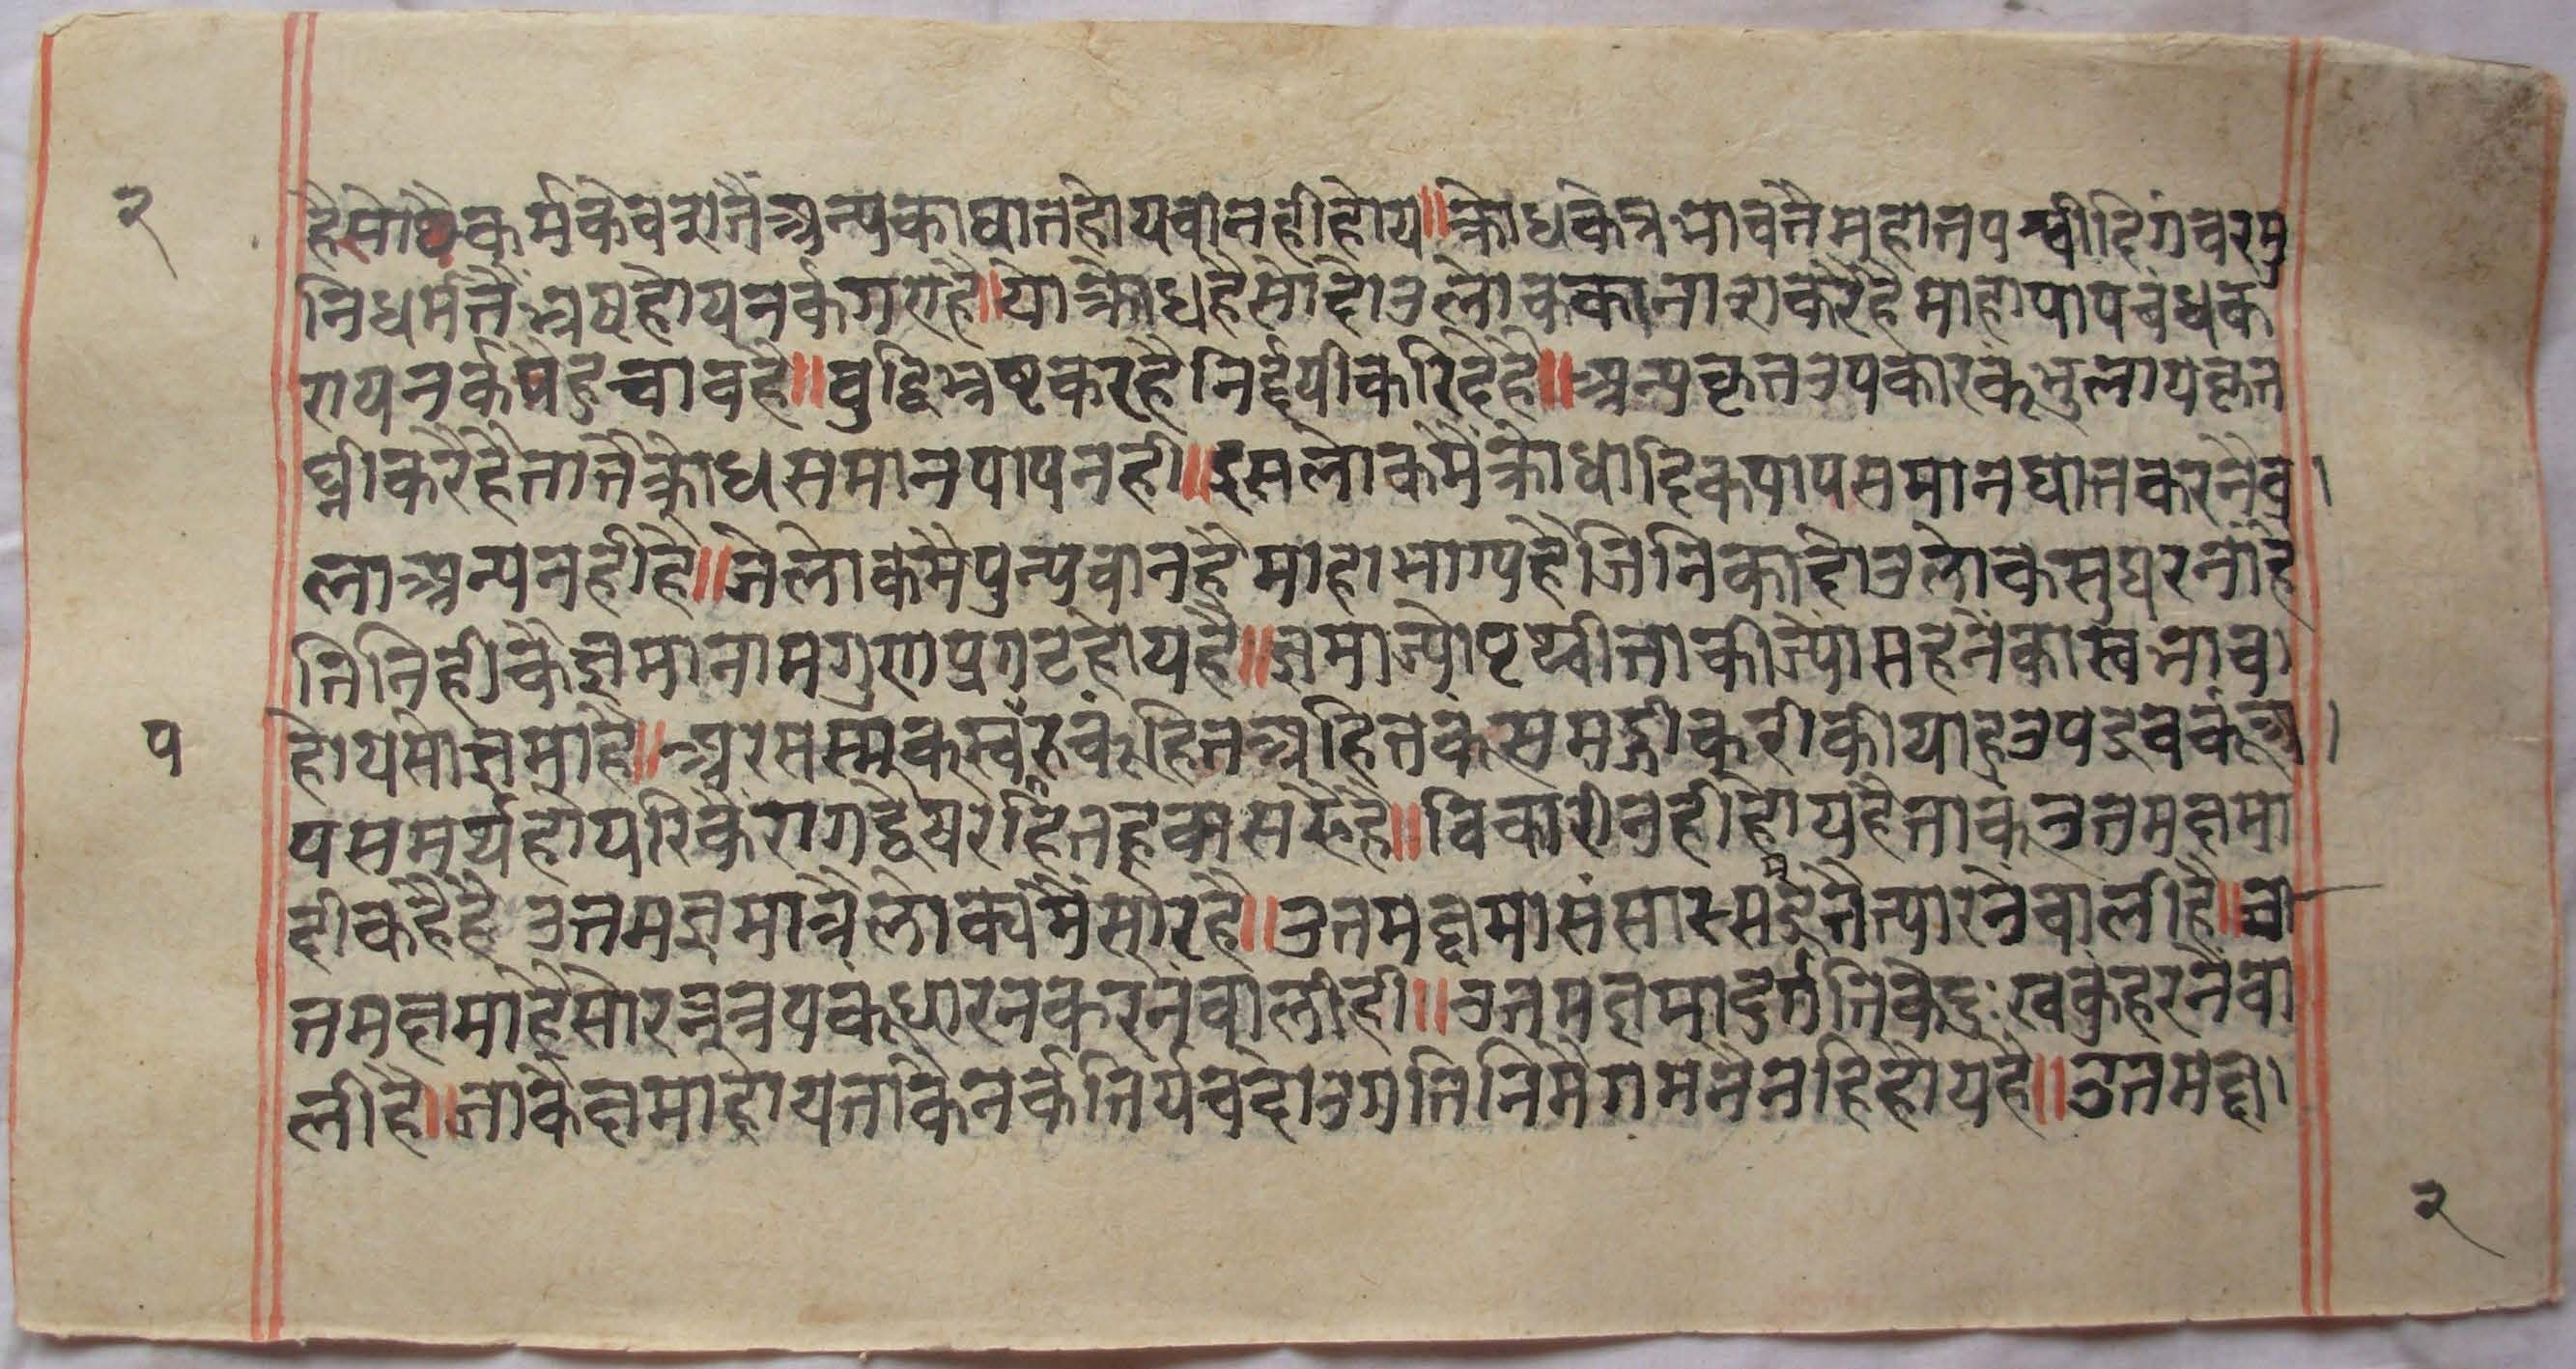 २
हैसोपैकर्मकेवशतैंअन्यकाघातहोयवानहीहोय॥क्रोधकेप्रभावतैमहातपश्वीदिगंवरमु
निधर्मतैंभ्रष्टहोयनर्कगएहै॥योक्रोधहैसोदोउलोककानाशकरैहैमाहापापबंधक
रायनर्कपहुचावहै॥वुद्धिभ्रष्टकरहैनिर्द्दयीकरिदेहै॥अन्यकृतउपकारकूभुलायकृत
घ्नीकरैहैतातैक्रोधसमानपापनही॥इसलोकमैंक्रोधादिकपापसमानघातकरनैव
लाअन्यनहीहै॥जेलोकमैपुन्यवानहैमाहाभाग्यहैजिनिकादोउलोकसुधरनाहै
तिनिहीकैक्षमानामगुणप्रगटहोयहै॥क्षमाज्योपृथ्वीताकीज्योसहनेंकास्वभाव
प
होयसोक्षमाहै॥अरसम्यकस्वंरूवंकूहितअहितकूंसमझीकरीकीयाहुउपद्रवकूंआ
पसमर्थहोयरिकैंरागद्वेषरहितहूवासहैहै॥विकारीनहीहोयहैताकेंउतमक्षमा
हीकहैहै उतमक्षमात्रैलोक्यमैंसारहै॥उतमक्षमासंसारसमुद्रतैत्यारनेवालीहै॥वो
तमक्षमाहैसोरत्नत्रयकूंधारनकरनेवालीही॥उतमक्षमादुर्गतिकेदुःखकुंहरनेंवा
लीहै॥जाकैक्षमाहोयताकैनर्कतिर्यचदोउगतिनिमैगमनेनहिहोयहै॥उतमक्ष
२